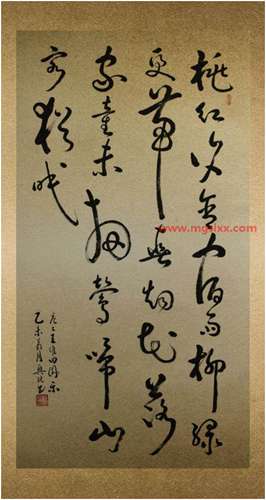 桃红复含宿雨柳绿
更带春烟花落
家童未扫莺啼山
客犹眠
王维田园乐
乙未
www.mgsixx.com